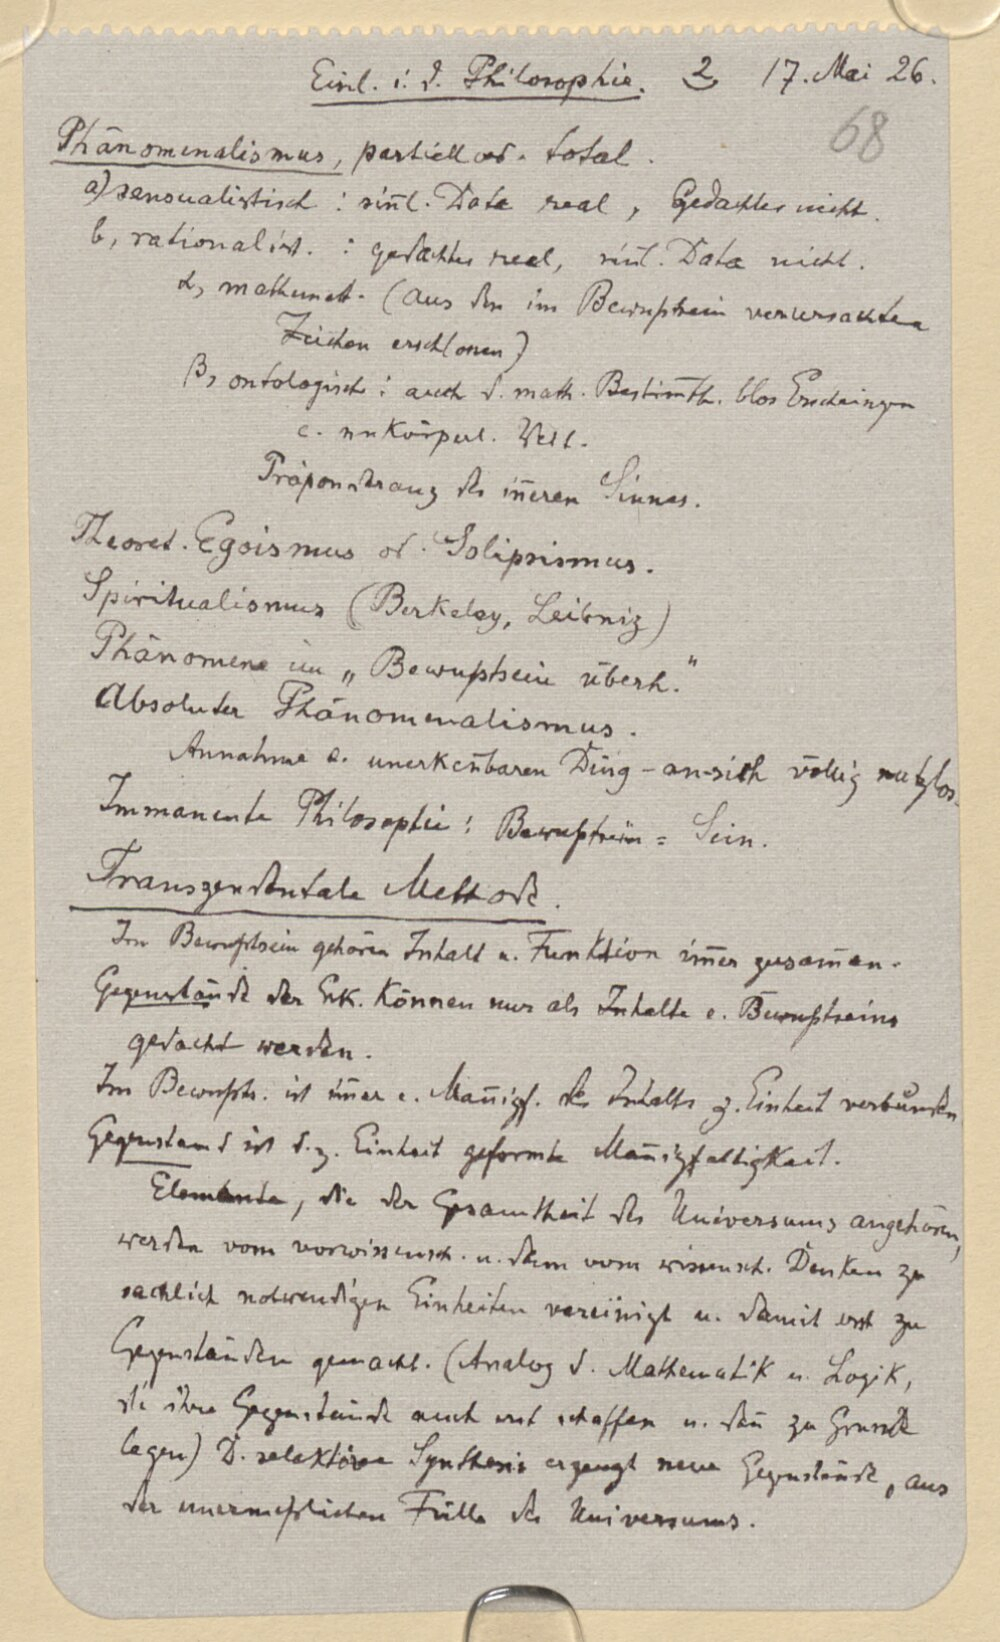 Einl. i. d. Philosophie. 2 17. Mai 26.
68
Phänomenalismus, partiell od. total.
a) sensualistisch : sinnl. Data real, Gedachtes nicht.
b, rationalist. : gedachtes real, sinl. Data nicht.
α, mathemat. (aus den im Bewußtsein verursachten
Zeichen erschlossen)
β, ontologisch : auch d. math. Bestimth. blos Erscheinungen
e. unkörperl. Welt.
Präponderanz des ineren Sinnes.
Theoret. Egoismus od. Solipsismus.
Spiritualismus (Berkeley, Leibniz)
Phänomene im „Bewußtsein überh."
Absoluter Phänomenalismus.
Annahme e. unerkenbaren Ding-an-sich völlig nutzlos.
Immanente Philosophie : Bewußtsein = Sein.
Transzendentale Methode.
Im Bewußtsein gehören Inhalt u. Funktion imer zusamen.
Gegenstände der Erk. können nur als Inhalte e. Bewußtseins
gedacht werden.
Im Bewußts. ist imer e. Manigf. des Inhalts z. Einheit verbunden
Gegenstand ist d. z. Einheit geformte Manigfaltigkeit.
Elemente, die der Gesamtheit des Universums angehören,
werden vom vorwissensch. u. dann vom wissensch. Denken zu
sachlich notwendigen Einheiten vereinigt u. damit erst zu
Gegenständen gemacht. (Analog d. Mathematik u. Logik,
die ihre Gegenstände auch erst schaffen u. dan zu Grunde
legen) D. selektive Synthesis erzeugt neue Gegenstände, aus
der unermeßlichen Fülle des Universums.